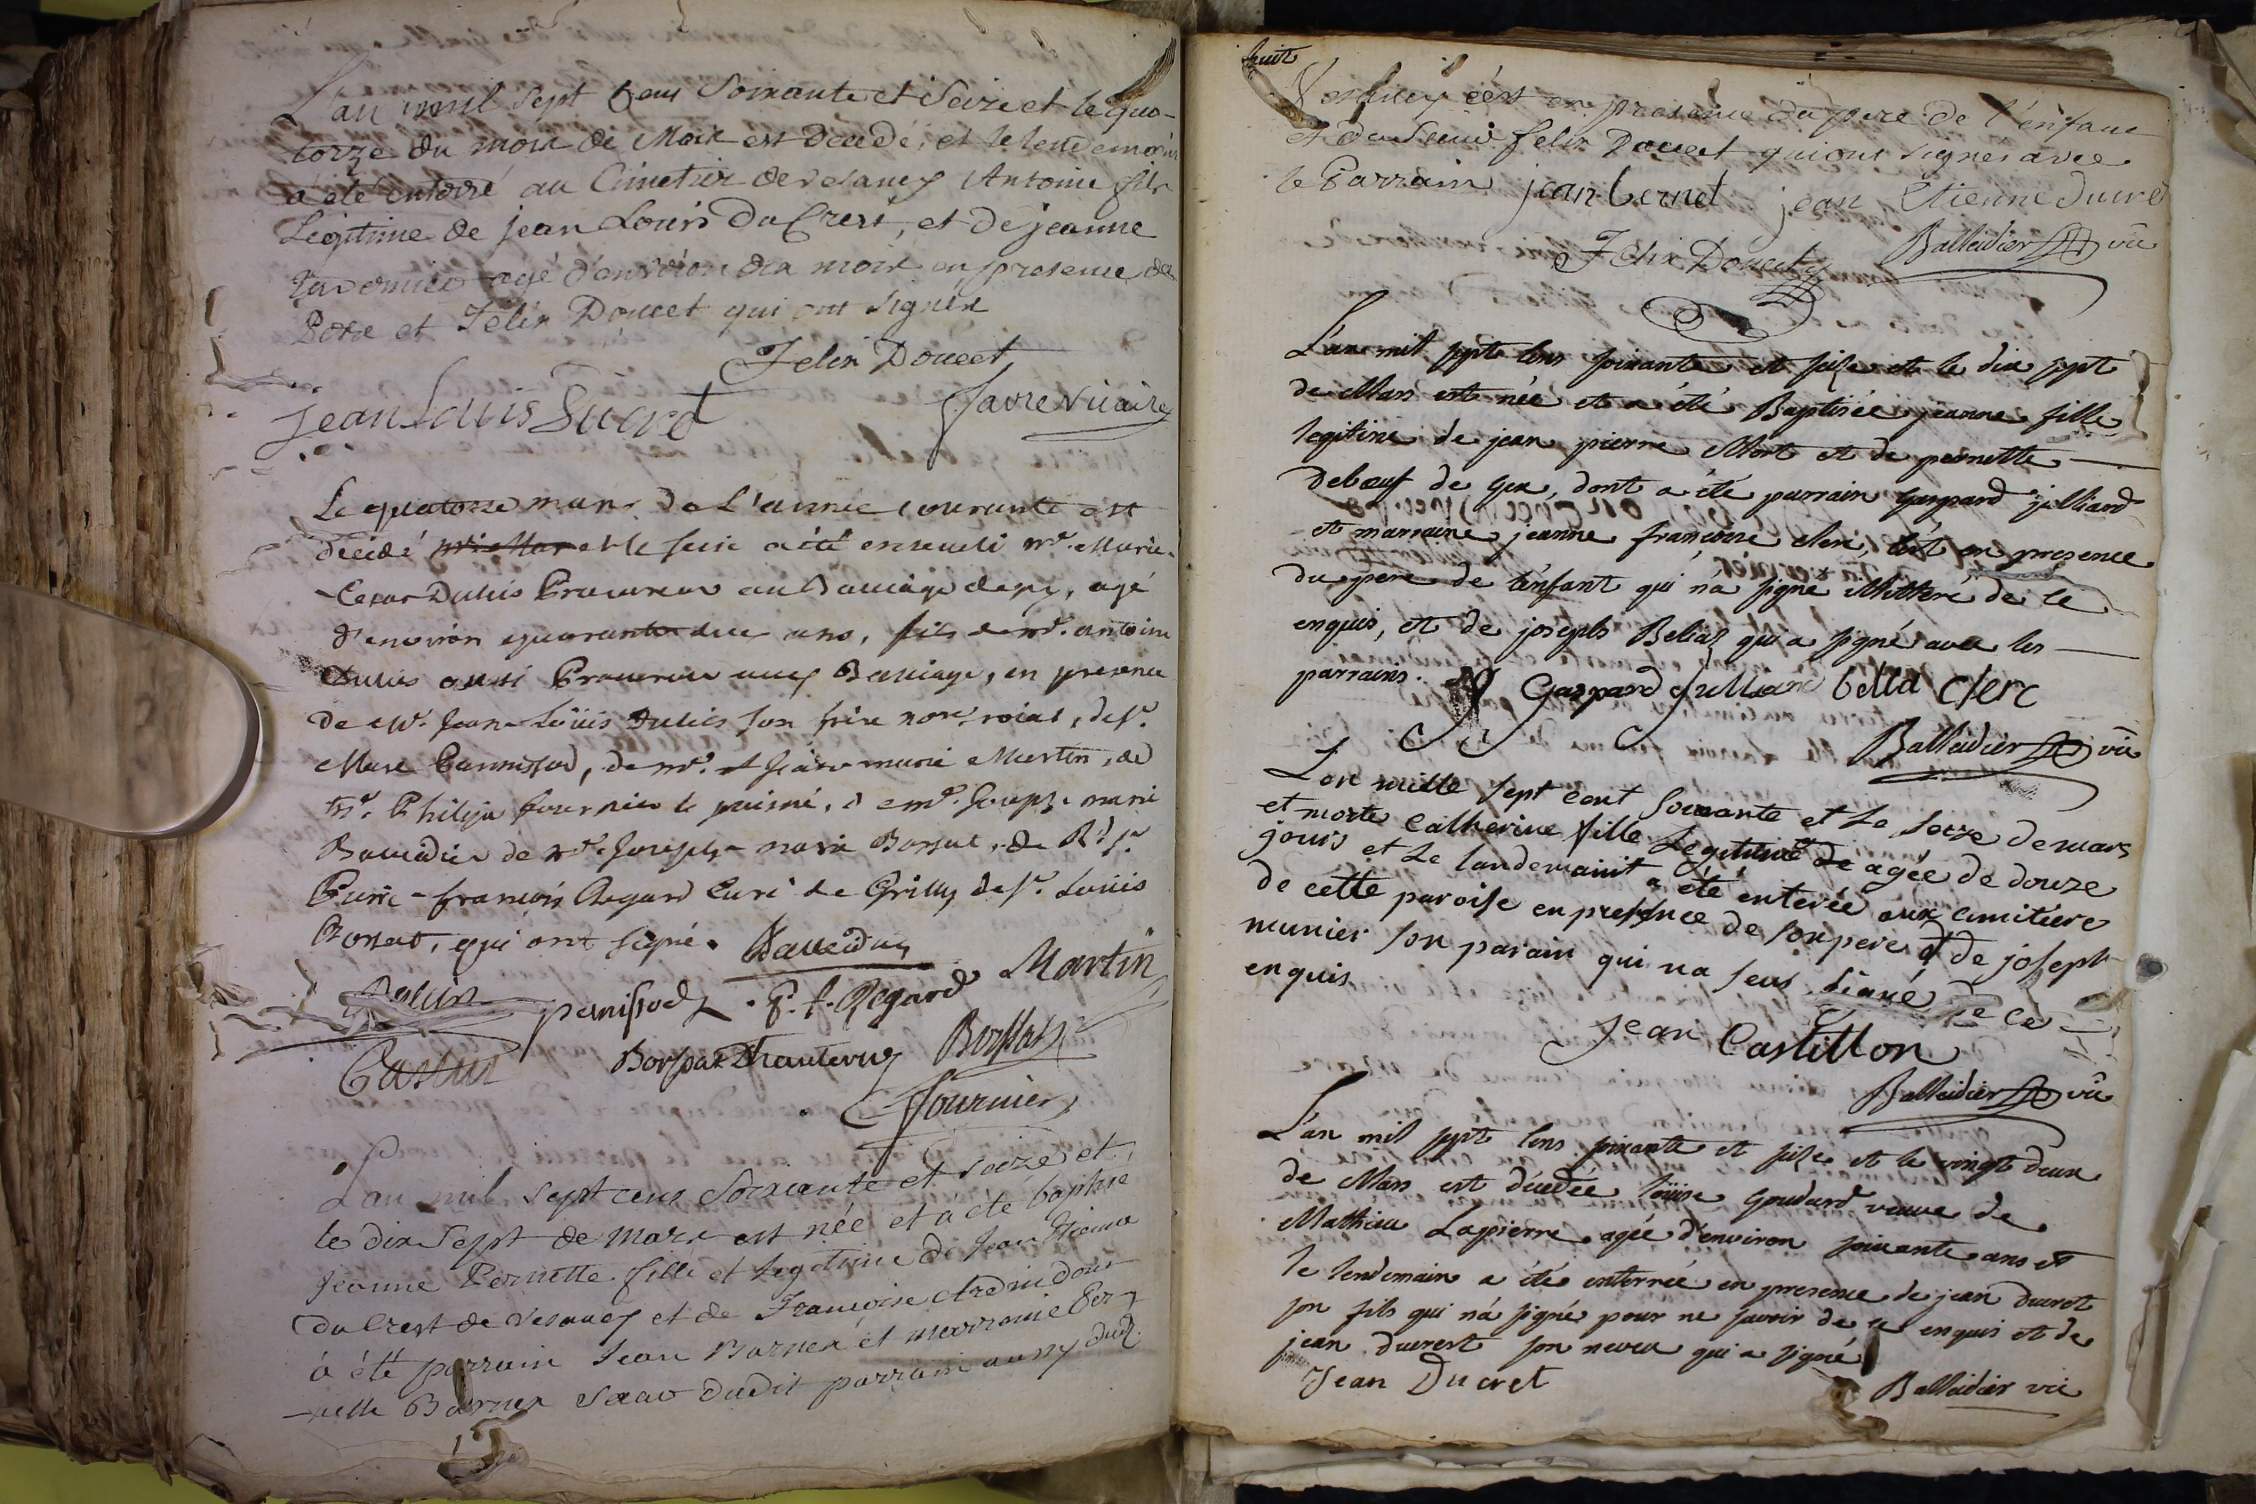 L'an mil sept Cens Soixante et Seize et le qua-
torze du mois de Mars est décedé, et le lendemain
a été enterré au Cimetier de vesancy Antoine fils
Légitime de jean Louis DuCrest, et de jeanne
agé d'environ dix mois en presence de
Pere et Félix Doucet qui ont signés
Felix Doucet
jean Louis Ducret
favre vicaire
Le quatorze mars de L'année courante est
décédé et le seize a été enseveli mr. Marie-
Cesar Duliis Procureur au Bailiage de gex, agé
d'environ quarante deux ans, fils de mr. antoine
Duliis aussi Procureur au Bailiage, en presence
de Mr. Jean-Loüis Duliis son frère nore. roial, de sr.
Marc Pannissod, de mr. Marie Martin, de
mr. Philipe fournier le puisné, de mr. Joseph marie
Balleidier de mr. Joseph-marie Borsat, de Rd. sr.
Pierre-françois Regard Curé de Grilly de sr. Loüis
qui ont signé. Balleidier
panissod P. f. Regard Martin
Castin Borsat Dhauterive Borssat
Fournier
L'an mil sept cens Soixante et seize et
le dix Sept de Mars est née et a été baptisé
Jeanne Pernette fille et Legitime de Jean Etienne
du Crest de Vesancy et de Françoise dont
à été parrain Jean Barnex et marrainne Per-
nette Barnex Sœur dudit parrain aussy dud.
huit
Vesancy cést en presence du pere de l'enfant
et du Sieur felix Doucet qui ont signes avec
le Parrain jean bernet jean Etienne Ducre
Felix Doucet Balleidier vic
L'an mil sept cens soixante et seize et le dix sept
de Mars est née et a été Baptisée jeanne fille
legitime de jean pierre Mort et de pernette
Debœuf de gex, dont a été parrain Gaspard julliard
et marraine jeanne françoise clerc, c'est en presence
du pere de l'enfant qui n'a signé illitteré de ce
enquis, et de joseph Beliaz qui a signé avec les
parrains. Gaspard Julliard bella clerc
Balleidier vic
L'an mille sept cent Soixante et Le seize de mars
et morte Catherine fille Legitime de agée de douze
jours et Le landemaint a été enterée aux cimitiere
de cette paroise en presence de son pere et de joseph
munier son parain qui na seus Signé de ce
enquis
jean Castillon
Balleidier vic
L'an mil sept cens soixante et seize et le vingt deux
de Mars est décedée loüise Goudard veuve de
Mathieu Lapierre agée d'environ soixante ans et
le lendemain a été enterrée en presence de jean ducret
son fils qui n'a signé pour ne savoir de ce enquis et de
jean ducrest son neveu qui a signé
Jean Ducret Balleidier vic